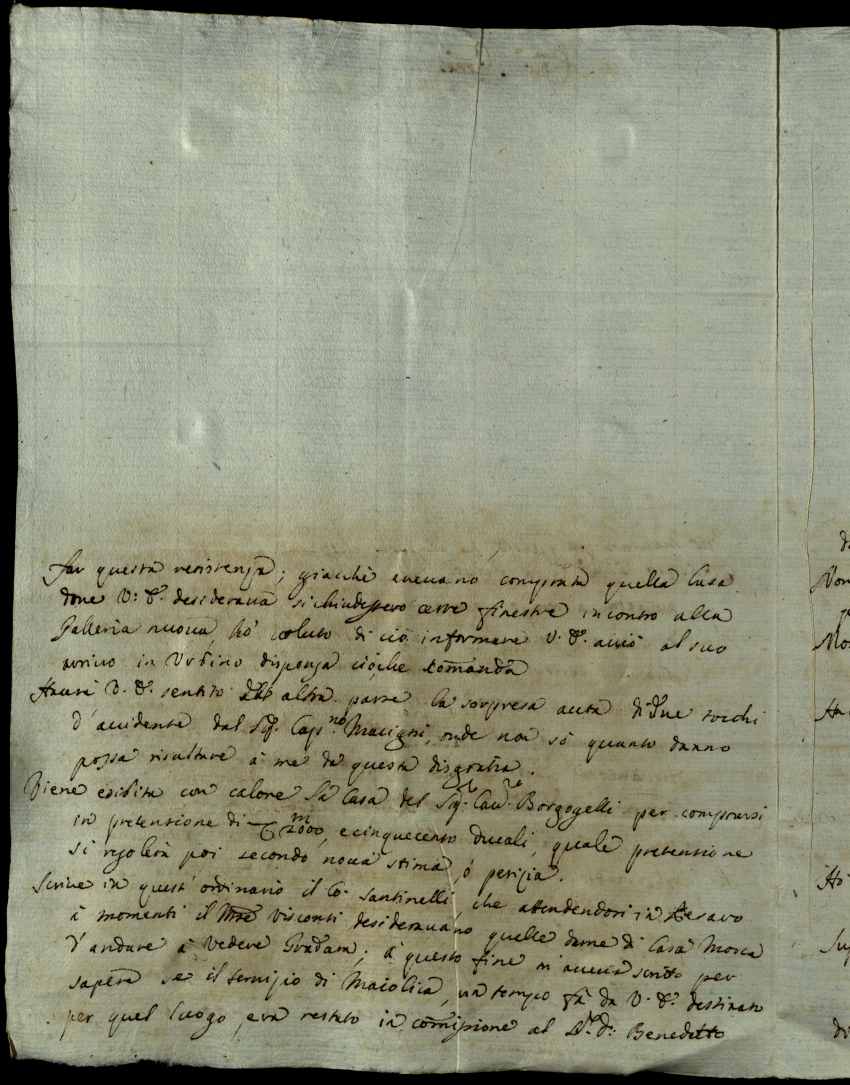 far questa resistenza; giacchè aveuano comprata quella Casa
doue V: E. desideraua si chiudessero certe finestre incontro alla
Galleria nuoua, hò voluto di ciò informare V. E. acciò al suo
arriuo in Urbino disponga ciò, che comanda
Haurà V. E. sentito dall' altra parte la sorpresa auta di due tocchi
d'accidente dal Sig.r Cap.no Macigni, onde non sò quanto danno
possa risultare à me da questa disgratia.
Viene esibita con calore la Casa del Sig.r Cau.re Borgogelli per comprarsi
in pretensione di 2000, e cinquecento Ducali, quale pretensione
si regolerà poi secondo noua stima, ò perizia.
Scriue in quest' ordinario il Co: Santinelli, che attendendosi in Pesaro
à momenti il Visconti desiderauano quelle dame di Casa Mosca
d'andare à vedere Gradara; à questo fine m'aueua scritto per
sapere se il seruizio di Maiolica, un tempo fà da V. E. destinato
per quel luogo, era restato in comissione al D. Benedetto
Non
Hò